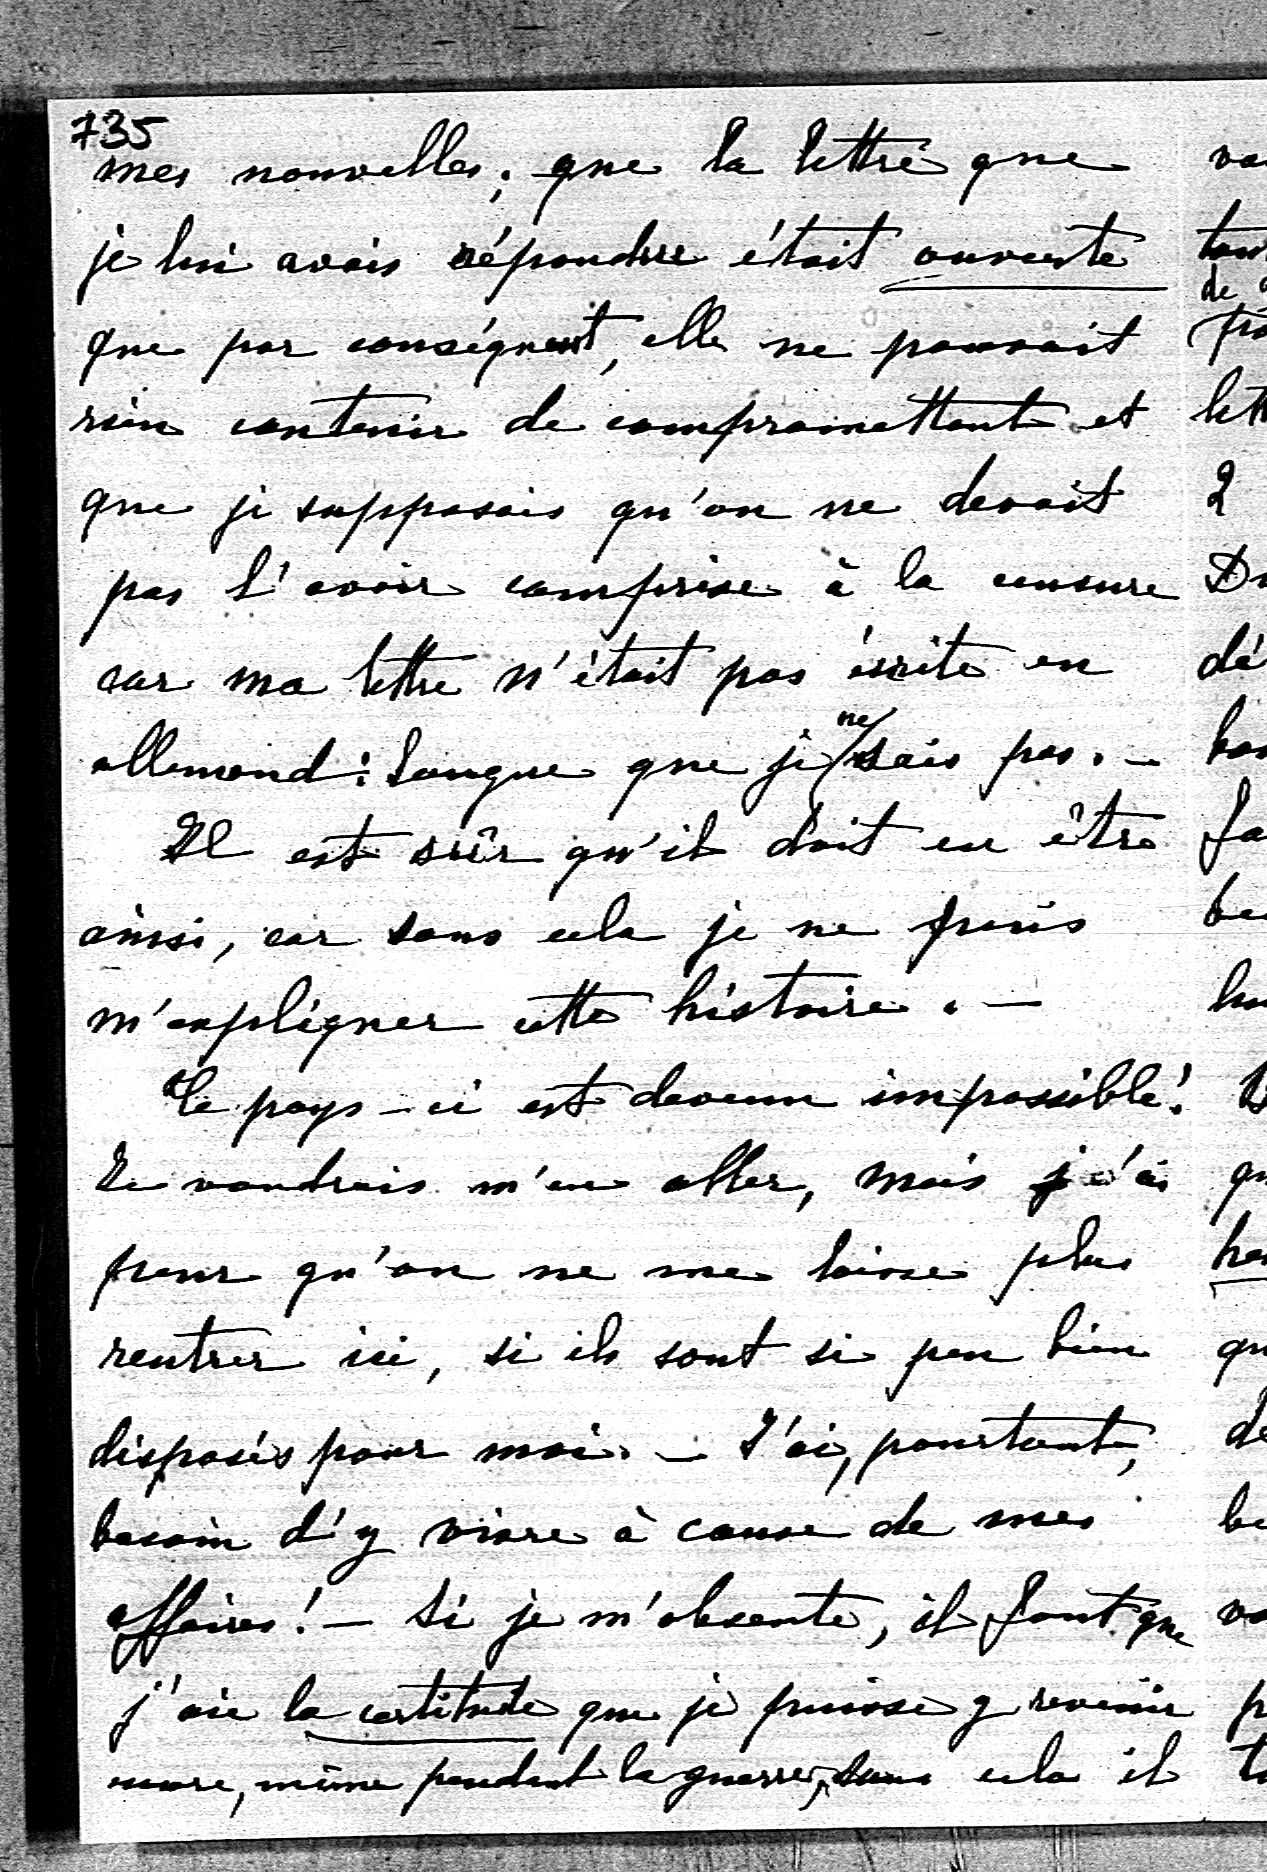 735
mes nouvelles; que la lettre que
je lui avais répondue était ouverte
que par conséquent, elle ne pouvait
rien contenir de compromettant et
que je supposais qu'on ne devait
pas l'avoir comprise à la censure
car ma lettre n'était pas écrite en
allemand: langue que je ne sais pas. —
Il est sûr qu'il doit en être
ainsi, car sans cela je ne puis
m'expliquer cette histoire. —
Ce pays-ci est devenu impossible!
Je voudrais m'en aller, mais j'ai
peur qu'on ne me laisse plus
rentrer ici, si ils sont si peu bien
disposés pour moi. — J'ai, pourtant,
besoin d'y vivre à cause de mes
affaires! — Si je m'absente, il faut que
j'aie la certitude que je puisse y revenir
encore, même pendant la guerre, sans cela il